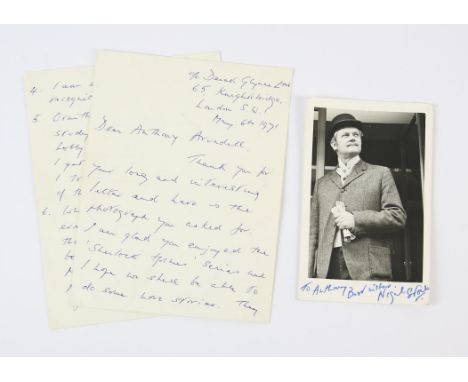 4. I saw
5.
study
Lobby
I
I
of
6.
c/o Derek Glynne Ltd
65 Knightsbridge,
London S.W.1
May 6th 1971
Dear Anthony Arundell,
Thank you for
your long and interesting
letter and here is the
photograph you asked for
I am glad you enjoyed the
'Sherlock Holmes' Series and
I hope we shall be able to
do some more stories. They
To Anthony Best wishes Nigel Stock